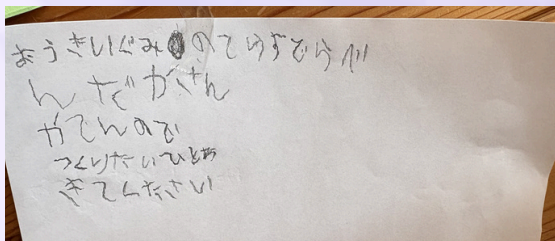 おうきいぐみのてりずでらが
んだがさん
がてんので
つくりたいひとわ
きてんださい